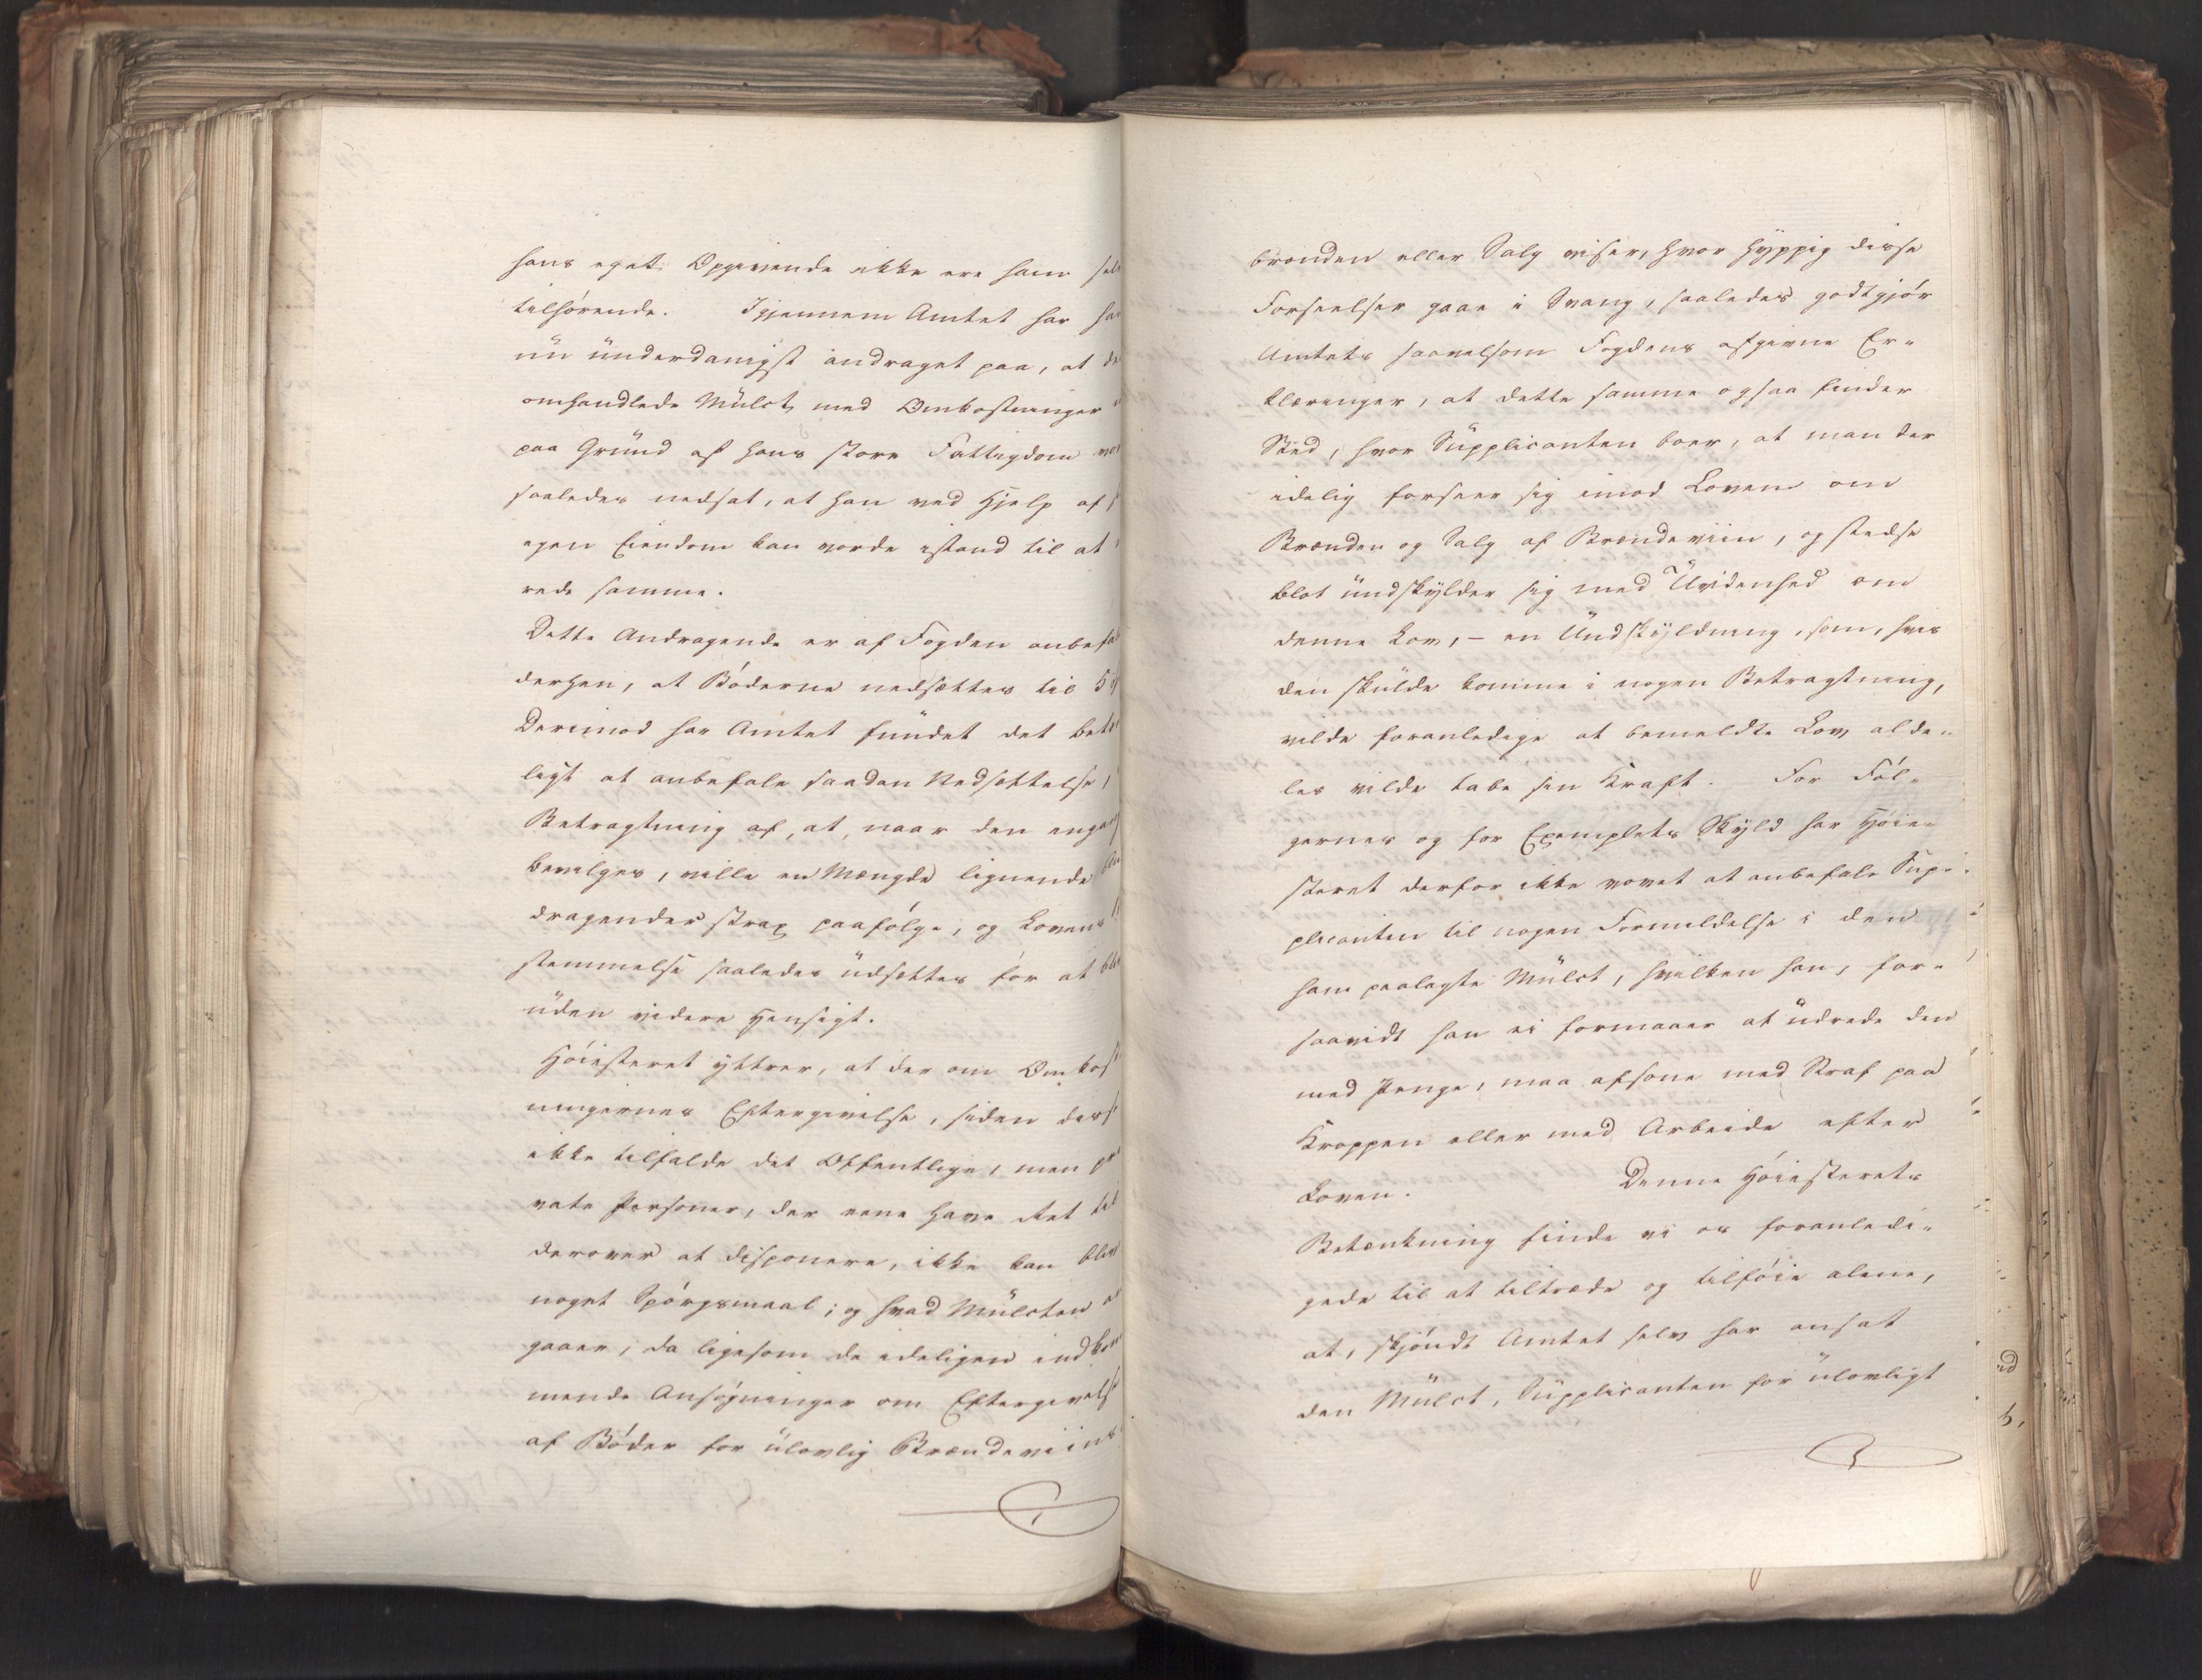 hans eget Opgivende ikke ere ham selv
tilhørende. Igjennem Amtet har han
nu underdanigst andraget paa, at de
omhandlede Mulct med Omkostninger
paa Grund af hans store Fattigdom
saaledes nedsat, at han ved Hjelp af
egen Eiendom kan vorde istand til at
rede samme.
Dette Andragende er af Fogden anbefa
derhen, at Bøderne nedsættes til 5
Derimod har Amtet fundet det bet
ligt at anbefale saadan Nedsættelse,
Betragtning af, at, naar den engang
bevilges, ville en Mængde lignende An
dragender strax paafølge, og Lovens
stemmelse saaledes udsættes for at bli
uden videre Hensigt.
Høiesteret yttrer, at der om Omkost
ningernes Eftergivelse, siden disse
ikke tilfalde det Offentlige, men pri
vate Personer, der ene have Ret til
derover at disponere, ikke kan blive
noget Spørgsmaal; og hvad Mulcten
gaaer, da ligesom de ideligen indkom
mende Ansøgninger om Eftergivelse
af Bøder for ulovlig Brændeviins
brænden eller Salg viser, hvor hyppig disse
Forseelser gaae i Svang, saaledes godtgjør
Amtets saavelsom Fogdens afgivne Er-
klæringer, at dette samme ogsaa finder
Sted, hvor Supplicanten boer, at man der
idelig forseer sig imod Loven om
Brænden og Salg af Brændeviin, og stedse
blot undskylder sig med Uvidenhed om
denne Lov, – en Undskyldning, som, hvis
den skulde komme i nogen Betragtning,
vilde foranledige at bemeldte Lov alde-
les vilde tabe sin Kraft. For Føl-
gernes og for Exemplets Skyld har Høie-
steret derfor ikke vovet at anbefale Sup-
plicanten til nogen Formildelse i den
ham paalagte Mulct, hvilken han, for-
saavidt han ei formaaer at udrede den
med Penge, maa afsone med Straf paa
Kroppen eller med Arbeide efter
Loven. Denne Høiesterets
Betænkning finde vi os foranledi-
gede til at tiltræde og tilføie alene,
at, skjøndt Amtet selv har ansat
den Mulct, Supplicanten for ulovligt